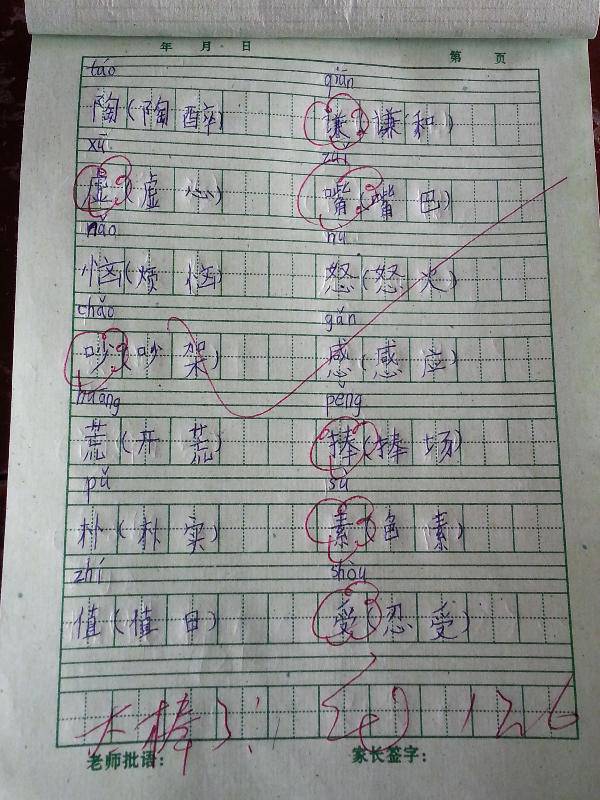 年 月 日 第 页
táo qiān
陶(陶醉) 谦(谦和)
xū zuǐ
虚(虚心) 嘴(嘴巴)
nǎo nù
恼(烦恼) 怒(怒火)
chǎo gǎn
吵(吵架) 感(感应)
huāng pěng
荒(开荒) 捧(捧场)
pǔ sù
朴(朴实) 素(色素)
zhí shòu
值(值日) 受(忍受)
太棒了! 126
老师批语: 家长签字: